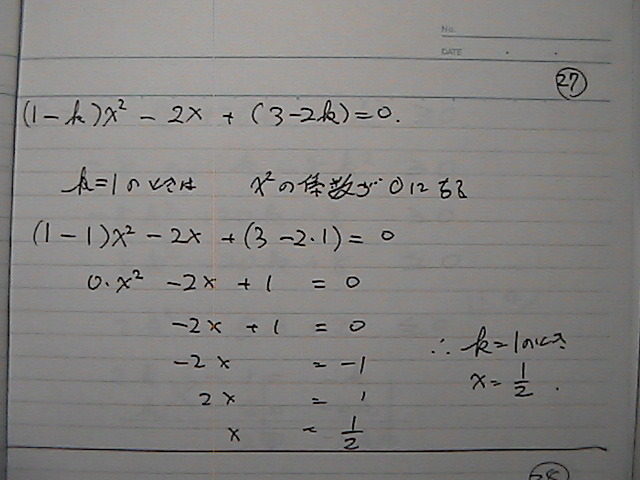 No.
DATE . .
27
(1-k)x² - 2x + (3-2k)=0.
k=1のときは x²の係数が0になる
(1-1)x² - 2x + (3-2·1) = 0
0·x² -2x + 1 = 0
-2x + 1 = 0
-2x = -1
2x = 1
x = 1/2
∴ k=1のとき
x = 1/2 .
28